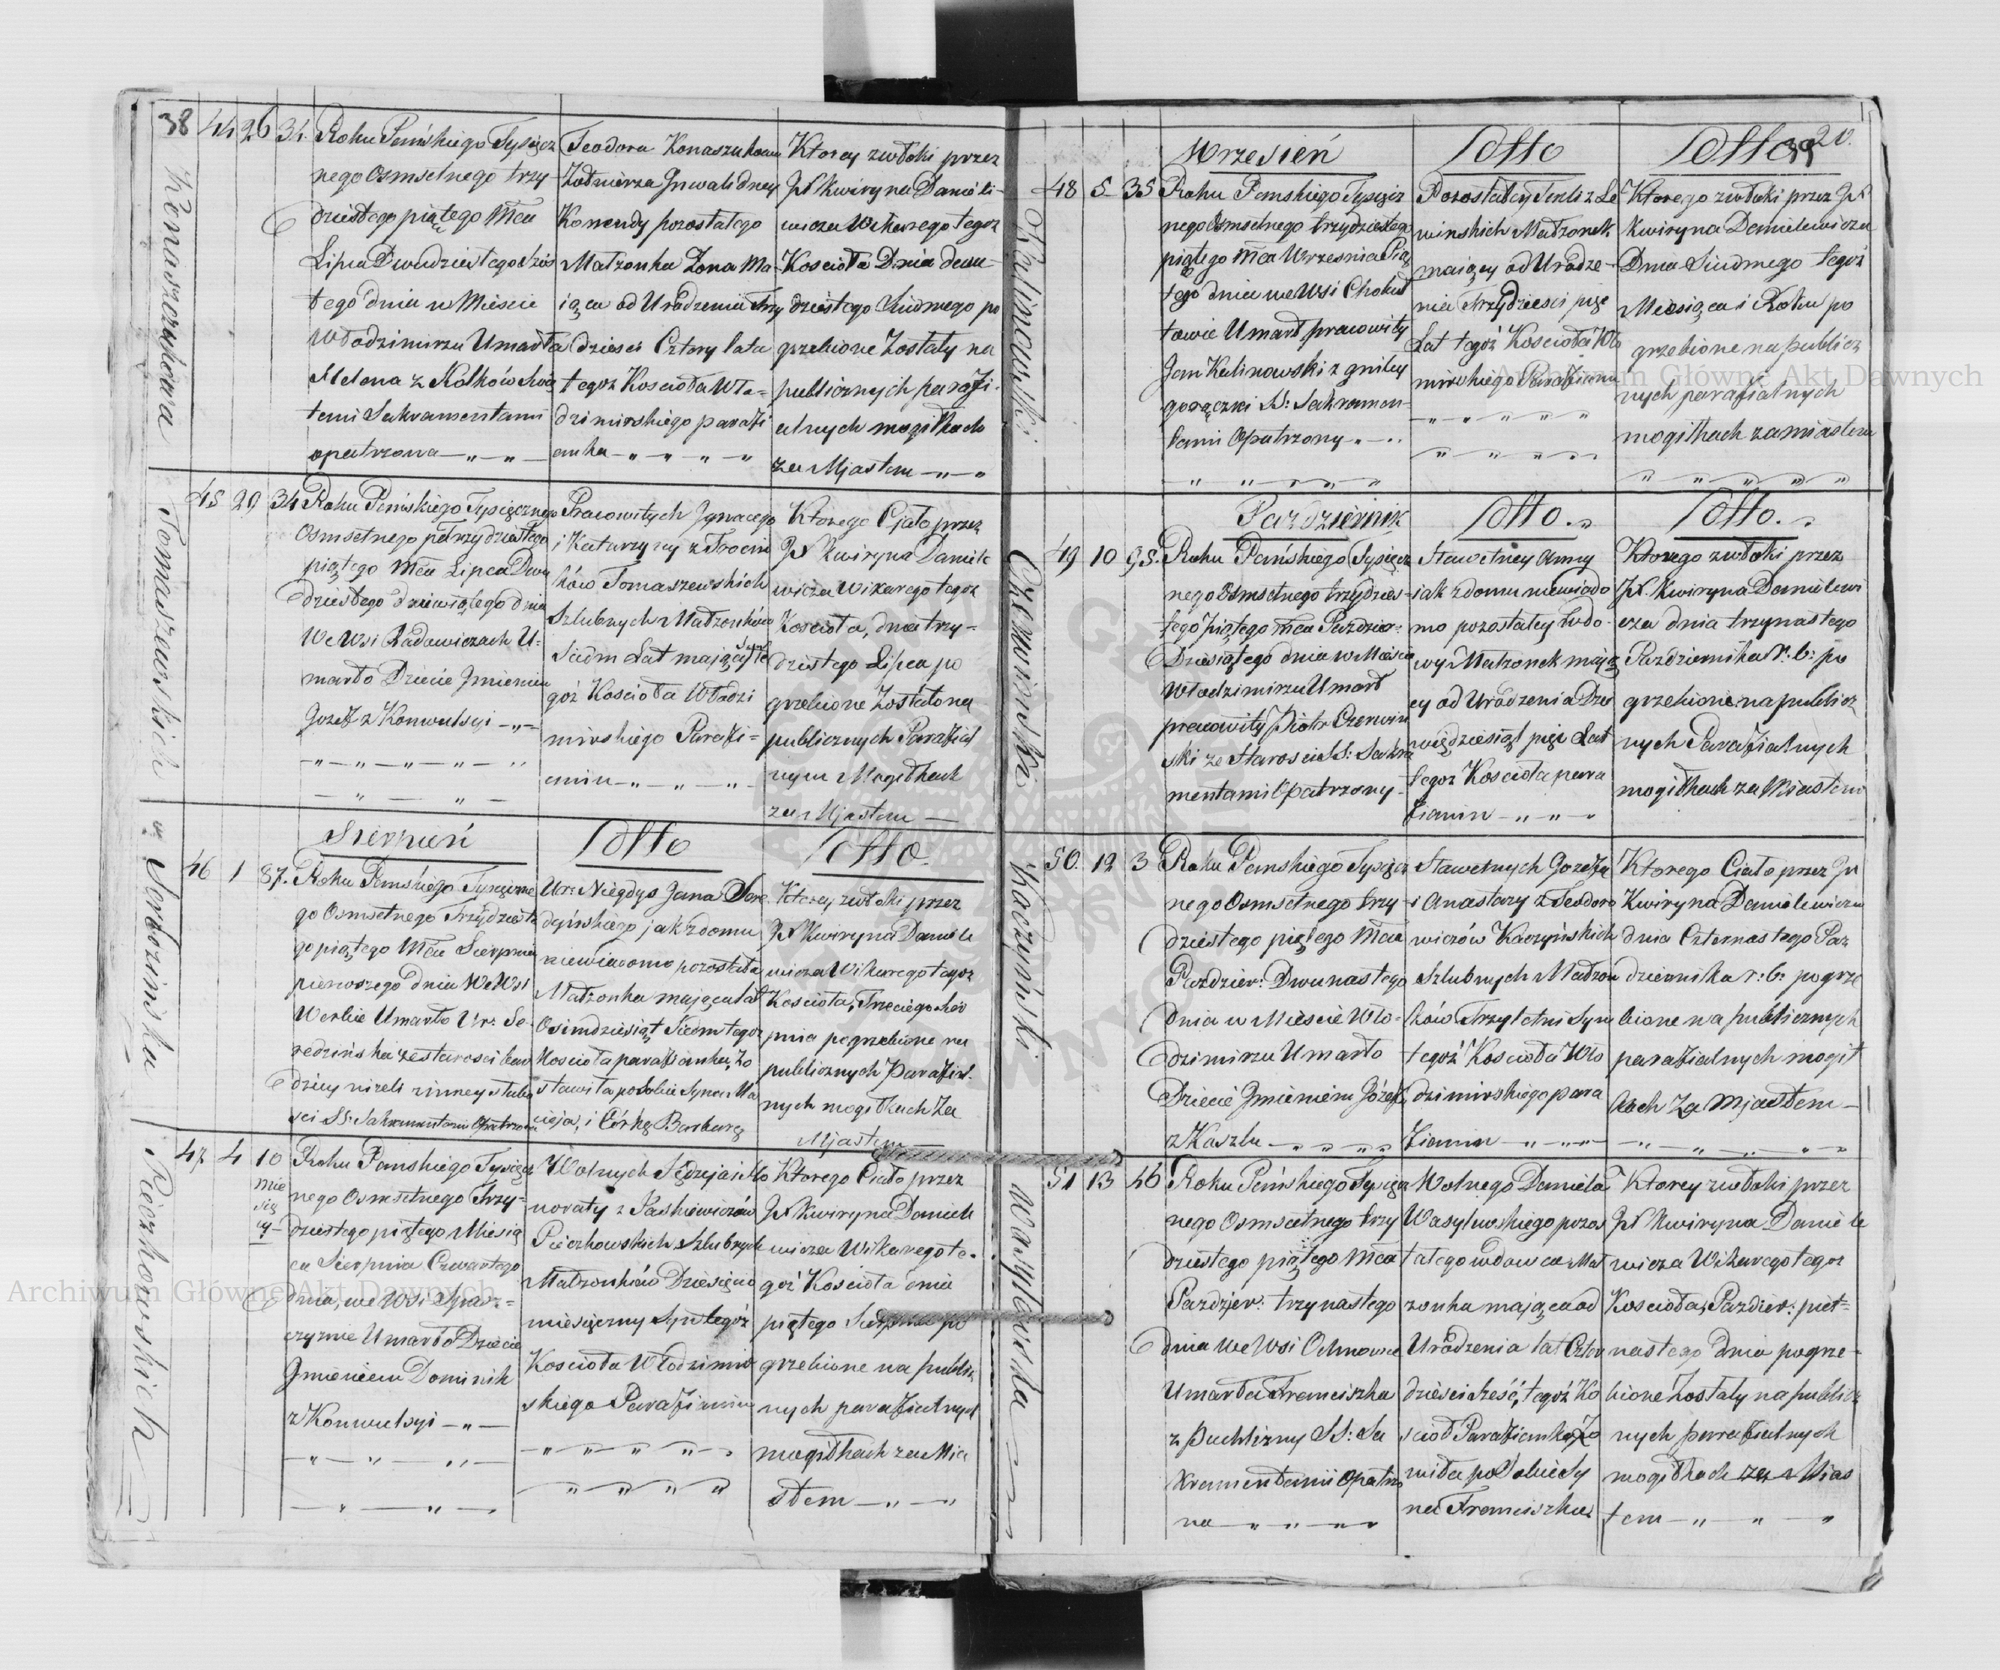 38
Konaszukowa
44 26 34.
Roku Pańskiego Tysiącz
nego Osmsetnego trzy-
dziestego piątego Mca
Lipca Dwudziestego szós
tego dnia w Mieście
Włodzimirzu Umarła
Helena z Kołków Świę
temi Sakramentami
opatrzona
Teodora Konaszukowa
Żołnierza Inwalidney
Komendy pozostałego
Małżonka Żona Ma-
iąca od Urodzenia trzy
dzieści Cztery lata
tegoż Kościoła Wło-
dzimirskiego parafi
anka
Ktorey zwłoki przez
JX Kwiryna Daniele-
wicza Wikarego tegoż
Kościoła Dnia dwu-
dziestego Siudmego po
grzebione Zostały na
publicznych parafi-
alnych mogiłkach
za Mjastem
Tomaszewskich
45 29 34
Roku Pańskiego Tysiącznego
Osmsetnego trzydziestego
piątego Mca Lipca Dwu
dziestego dziewiątego dnia
We Wsi Radowiczach U-
marło Dziecie Jmieniem
Jozef z Konwulsyi
Pracowitych Jgnacego
i Katarzyny z Trocin
ków Tomaszewskich
Szlubnych Małżonków
Siedm Lat mający Syn te
goż Kościoła Włodzi
mirskiego Parafi-
anin
Ktorego Ciało przez
JX Kwiryna Daniele
wicza Wikarego tegoż
Kościoła, dnia trzy-
dziestego Lipca po
grzebione Zostało na
publicznych Parafial
nym Mogiłkach
za Mjastem
Sierpień
Dtto
Dtto.
46 1 87.
Roku Pańskiego Tysiączne
go Osmsetnego Trzydzieste
go piątego Mca Sierpnia
pierwszego dnia We Wsi
Werbie Umarła Ur: Se-
redzińska ze starości bar
dziey niżeli z inney słabo
ści SS: Sakramentami Opatrzona
Ur: Niegdyś Jana Sere
dzińskiego jak z domu
niewiadomo pozostała
Małżonka mająca lat
Osimdziesiąt Siedm tegoż
Kościoła parafianka, Zo
stawiła po sobie Syna Ma
cieja, i Córkę Barbarę
Ktorey zwłoki przez
JX Kwiryna Daniele
wicza Wikarego tegoż
Kościoła, Trzeciego Sier
pnia pogrzebione na
publicznych Parafial-
nych mogiłkach Za
Mjastem
Pieczkowskich
47 4 10
Mie
się
cy
Roku Pańskiego Tysiącz
nego Osmsetnego Trzy-
dziestego piątego Miesią
ca Sierpnia Czwartego
dnia, we Wsi
Umarło Dziecie
Jmieniem Dominik
z Konwulsyi
Wolnych Jędrzeja i Ho
noraty z Paśkiewiczów
Pieczkowskich Szlubnych
Małżonków Dziesięcio
miesięczny Syn tegoż
Kościoła Włodzimir
skiego Parafianin
Ktorego Ciało przez
JX Kwiryna Daniele
wicza Wikarego te-
goż Kościoła dnia
piątego Sierpnia po
grzebione na publicz
nych parafialnych
mogiłkach za Mia
stem
39 20.
Kalinowski
Wrzesień
Dtto
Dtto
48 5 35
Roku Pańskiego Tysiącz
nego Osmsetnego trzydziestego
piątego Mca Września Pią
tego dnia we Wsi Chobuł
towie Umarł pracowity
Jan Kalinowski z gniłey
gorączki SS: Sakramen-
tami Opatrzony
Pozostałey Tekli z Le
winskich Małżonek
maiący od Urodze-
nia Trzydzieści pięć
Lat tegoż Kościoła Wło
mirskiego Parafianin
Ktorego zwłoki przez JX
Kwiryna Danielewicza
Dnia Siudmego tegoż
Miesiąca i Roku po
grzebione na publicz
nych parafialnych
mogiłkach za miastem
Czerwiński
Październik
Dtto.
Dtto.
49 10 95.
Roku Pańskiego Tysiącz
nego Osmsetnego trzydzies-
tego piątego Mca Paździer:
Dziesiątego dnia w Mieście
Włodzimirzu Umarł
pracowity Piotr Czerwiń
ski ze Starości SS: Sakra
mentami Opatrzony
Sławetney Anny
jak z domu niewiado
mo pozostałey Wdo-
wy Małżonek mają
cy od Urodzenia Dzie
więdziesiąt pięć Lat
tegoż Kościoła para
fianin
Ktorego zwłoki przez
JX. Kwiryna Danielewi
cza dnia trzynastego
Października r: b: po
grzebione na publicz
nych Parafialnych
mogiłkach za Miastem
Kaczyński
50. 12 3
Roku Pańskiego Tysiącz
nego Osmsetnego trzy-
dziestego piątego Mca
Paździer: Dwunastego
dnia w Mieście Wło-
dzimirzu Umarło
Dziecie Jmieniem Józef
z Kaszlu
Sławetnych Jozefa
i Anastazy z Teodoro
wiczów Kaczyńskich
Szlubnych Małżon
ków Trzyletni Syn
tegoż Kościoła Wło
dzimirskiego para
fianin
Ktorego Ciało przez JX
Kwiryna Danielewicza
dnia Czternastego Paź
dziernika r: b: pogrze
bione na publicznych
parafialnych mogił
kach Za Mjastem
Wasylewska
51 13 46
Roku Pańskiego Tysiącz
nego Osmsetnego trzy
dziestego piątego Mca
Paździer: trzynastego
dnia We Wsi Ochnowce
Umarła Franciszka
z puchlizny SS: Sa
kramentami Opatrzo
na
Wolnego Daniela
Wasylewskiego pozos
tałego wdowca Mał
żonka mająca od
Urodzenia lat Czter
dzieści sześć, tegoż Ko
ścioł Parafianka, Zo
stawiła po Sobie Sy
na Franciszka
Ktorey zwłoki przez
JX Kwiryna Daniele
wicza Wikarego tegoż
Kościoła, Paździer: pięt-
nastego dnia pogrze-
bione Zostały na publicz
nych parafialnych
mogiłkach za Mias
tem
Archiwum Główne Akt Dawnych
Archiwum Główne Akt Dawnych